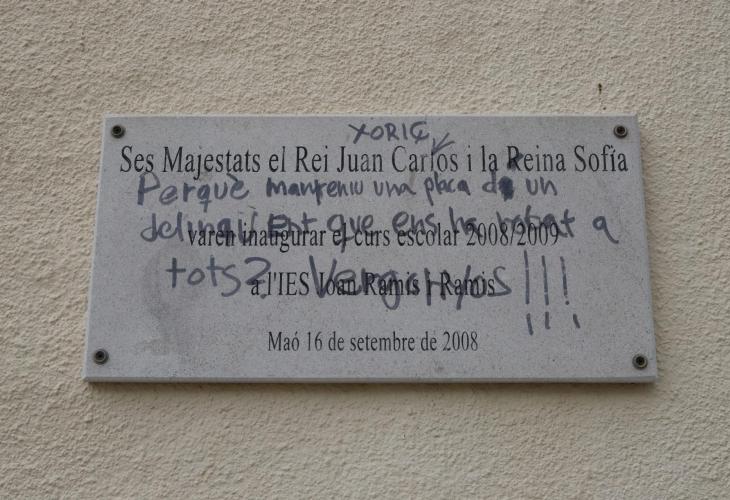 XORIÇ
Ses Majestats el Rei Juan Carlos i la Reina Sofía
Perquè manteniu una placa de un
delinqüent que ens ha robat a
varen inaugurar el curs escolar 2008/2009
tots? Vergonyos!!!
a l'IES Joan Ramis i Ramis
Maó 16 de setembre de 2008